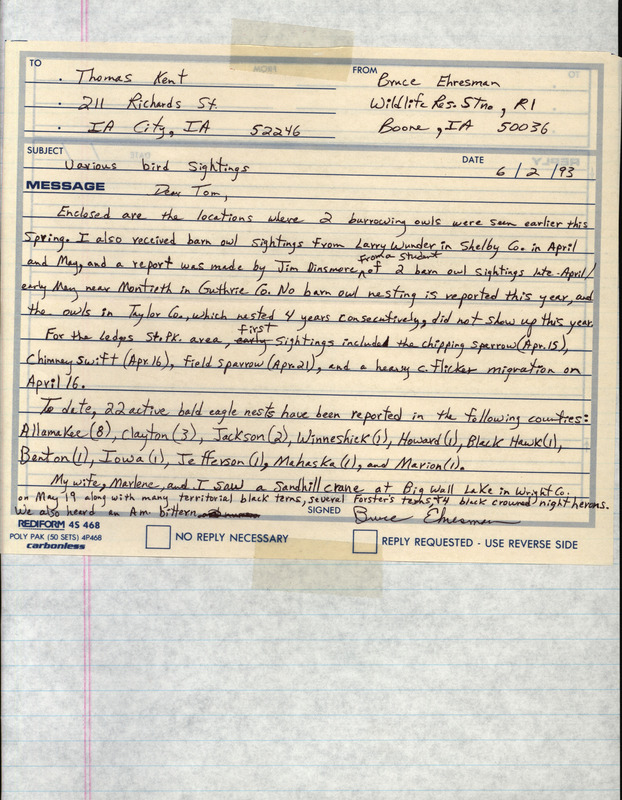 TO
FROM
Thomas Kent
Bruce Ehresman
211 Richards St.
Wildlife Res. Stn., R1
IA City, IA 52246
Boone, IA 50036
SUBJECT
Various bird sightings
DATE
6/2/93
MESSAGE
Dear Tom,
Enclosed are the locations where 2 burrowing owls were seen earlier this
Spring. I also received barn owl sightings from Larry Wunder in Shelby Co. in April
and May, and a report was made by Jim Dinsmore, from a student of 2 barn owl sightings late-April/
early May near Montieth in Guthrie Co. No barn owl nesting is reported this year, and
the owls in Taylor Co., which nested 4 years consecutively, did not show up this year.
For the Ledges St. Pk. area, early first sightings included the chipping sparrow (Apr. 15),
chimney swift (Apr. 16), field sparrow (Apr. 21), and a heavy c. flicker migration on
April 16.
To date, 22 active bald eagle nests have been reported in the following counties:
Allamakee (8), Clayton (3), Jackson (2), Winneshiek (1), Howard (1), Black Hawk (1),
Benton (1), Iowa (1), Jefferson (1), Mahaska (1), and Marion (1).
My wife, Marlene, and I saw a Sandhill crane at Big Wall Lake in Wright Co.
on May 19 along with many territorial black terns, several Forster's terns, + 4 black crowned night herons.
We also heard an Am. bittern
SIGNED
Bruce Ehresman
REDIFORM 4S 468
POLY PAK (50 SETS) 4P468
carbonless
NO REPLY NECESSARY
REPLY REQUESTED - USE REVERSE SIDE